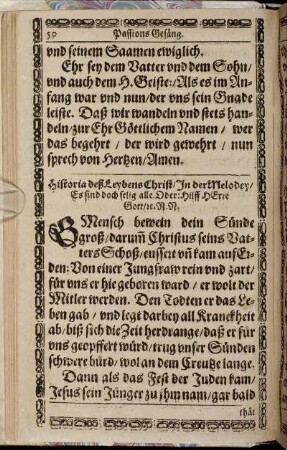 50 Passions Gesäng.
vnd seinem Saamen ewiglich.
Ehr sey dem Vatter vnd dem Sohn/
vnd auch dem H. Geiste:/Als es im An-
fang war vnd nun/der vns sein Gnade
leiste. Daß wir wandeln vnd stets han-
deln/zur Ehr Göttlichem Namen / wer
das begehrt / der wird gewehrt / nun
sprech von Hertzen/Amen.
Historia deß Leydens Christ/In der Melodey/
Es sind doch selig alle. Oder: Hilff HErre
Gott/rc. N. N.
O Mensch bewein dein Sünde
groß/darum̃ Christus seins Vat-
ters Schoß/eussert vñ kam auf Er-
den: Von einer Jungfraw rein vnd zart/
für vns er hie geboren ward / er wolt der
Mitler werden. Den Todten er das Le-
ben gab / vnd legt darbey all Kranckheit
ab/biß sich die Zeit herdrange/daß er für
vns geopffert würd/trug vnser Sünden
schwere bürd/wol an dem Creutze lange.
Dann als das Fest der Juden kam/
Jesus sein Jünger zu jhm nam/gar bald
thät